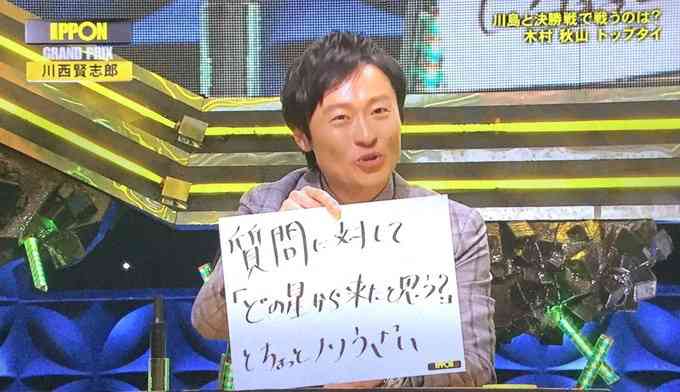 IPPON
GRAND PRIX
川西賢志郎
川島と決勝戦で戦うのは?
木村 秋山 トップタイ
質問に対して
「どの星から来たと思う?」
とちょっとノリ
IPPON